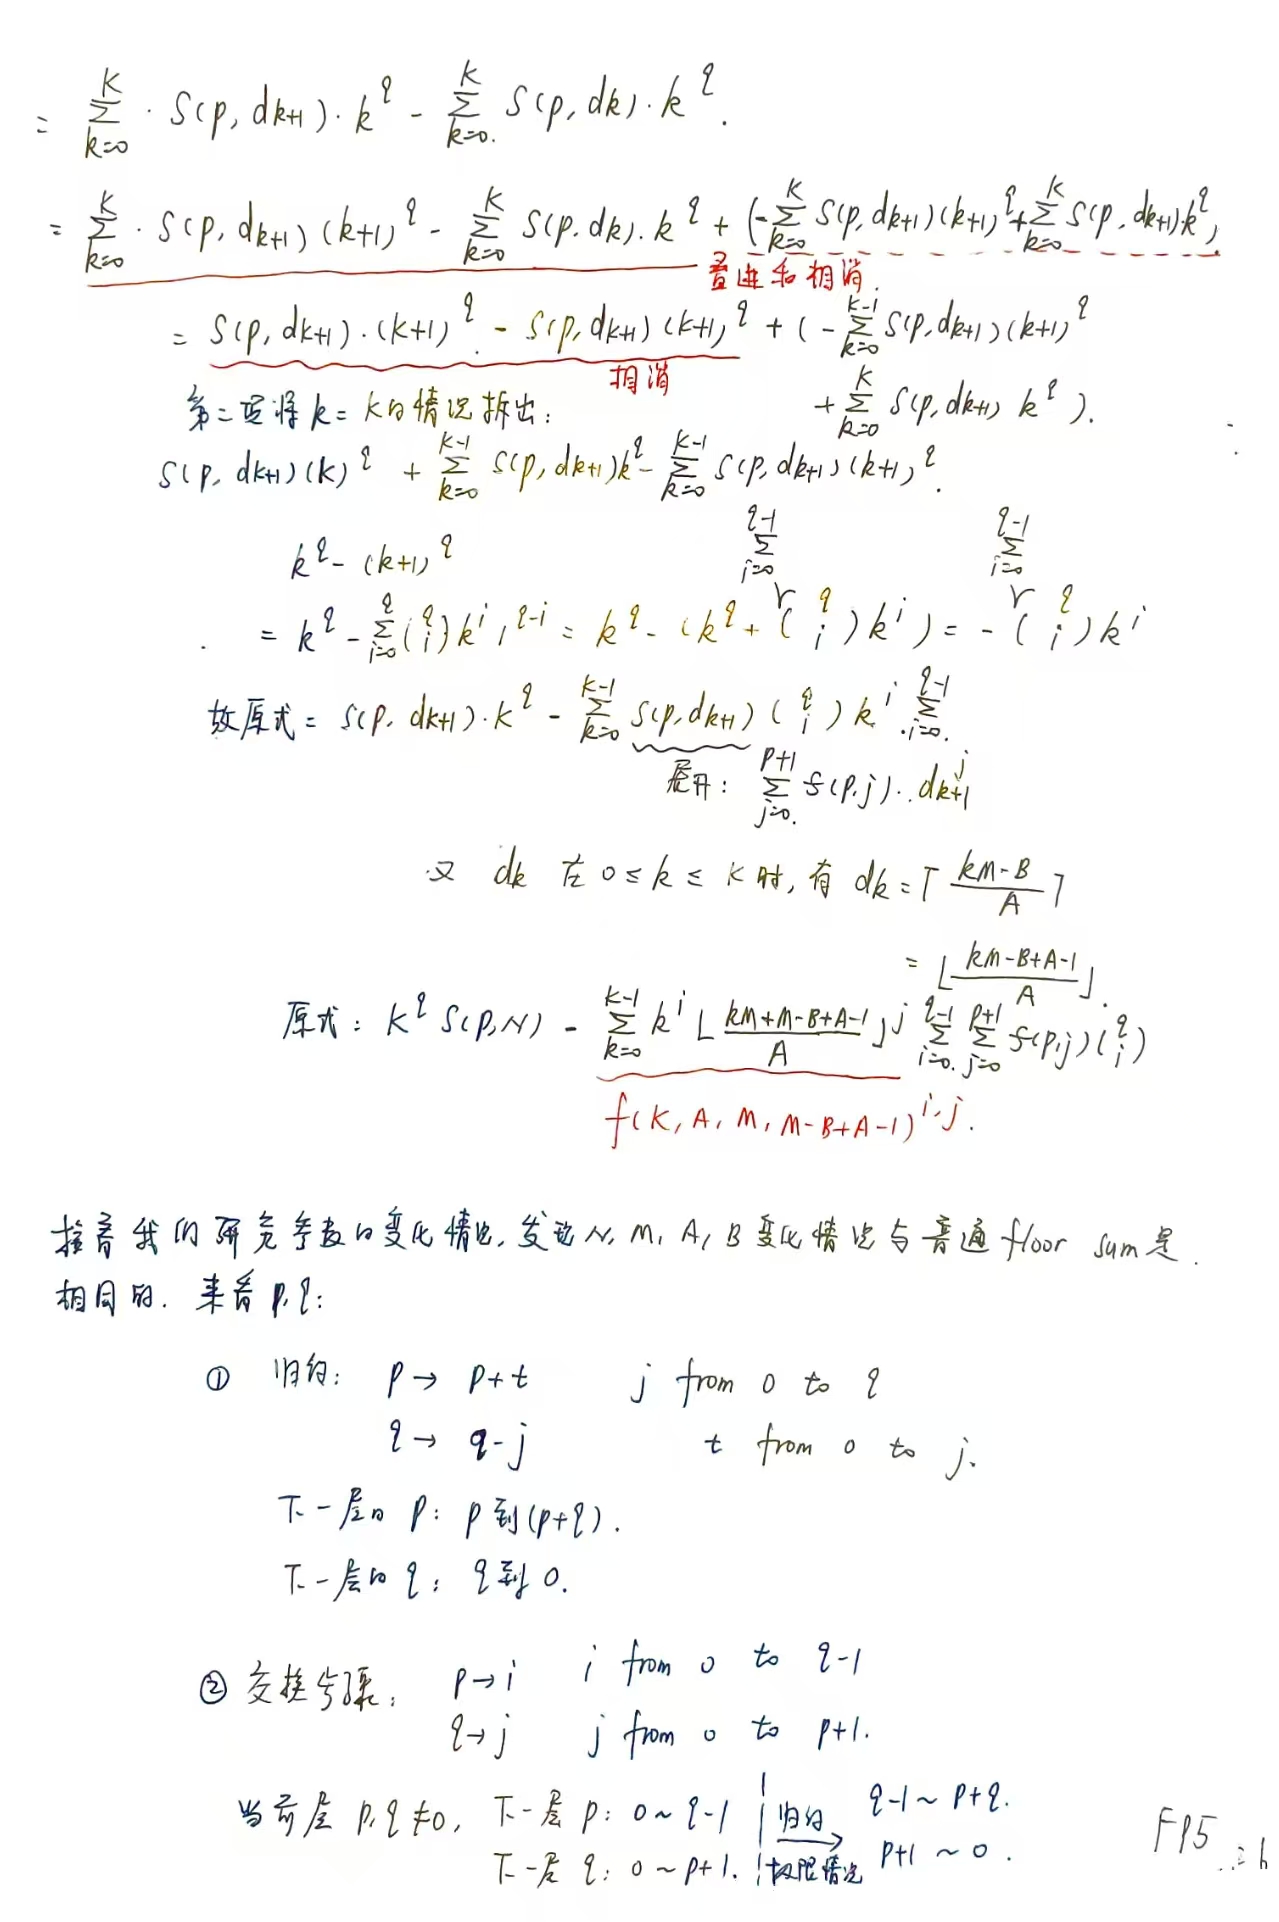 = \sum_{k=0}^{K} · S(p, d_{k+1}) · k^q - \sum_{k=0}^{K} S(p, d_k) · k^q.
= \sum_{k=0}^{K} · S(p, d_{k+1}) (k+1)^q - \sum_{k=0}^{K} S(p, d_k) · k^q + (-\sum_{k=0}^{K} S(p, d_{k+1}) (k+1)^q + \sum_{k=0}^{K} S(p, d_{k+1}) k^q)
叠进和相消.
= S(p, d_{K+1}) · (K+1)^q - S(p, d_{K+1}) (K+1)^q + ( - \sum_{k=0}^{K-1} S(p, d_{k+1}) (k+1)^q
相消
+ \sum_{k=0}^{K} S(p, d_{k+1}) k^q ).
第二项将 k = K 的情况拆出:
S(p, d_{K+1}) (K)^q + \sum_{k=0}^{K-1} S(p, d_{k+1}) k^q - \sum_{k=0}^{K-1} S(p, d_{k+1}) (k+1)^q.
k^q - (k+1)^q
= k^q - \sum_{i=0}^{q} \binom{q}{i} k^i 1^{q-i} = k^q - (k^q + \sum_{i=0}^{q-1} \binom{q}{i} k^i) = - \sum_{i=0}^{q-1} \binom{q}{i} k^i
故原式 = S(p, d_{K+1}) · K^q - \sum_{k=0}^{K-1} S(p, d_{k+1}) \binom{q}{i} k^i \sum_{i=0}^{q-1}.
展开: \sum_{j=0}^{p+1} f(p, j) · d_{k+1}^j
又 d_k 在 0 ≤ k ≤ K 时, 有 d_k = ⌈\frac{kM-B}{A}⌉
= ⌊\frac{kM-B+A-1}{A}⌋.
原式: K^q S(p, N) - \sum_{k=0}^{K-1} k^i ⌊\frac{kM+M-B+A-1}{A}⌋^j \sum_{i=0}^{q-1} \sum_{j=0}^{p+1} f(p, j) \binom{q}{i}
f(K, A, M, M-B+A-1)^{i, j}.
接着我们研究参数的变化情况, 发现 N, M, A, B 变化情况与普通 floor sum 是
相同的. 来看 p, q:
① 归约: p → p+t j from 0 to q
q → q-j t from 0 to j.
下一层的 p: p 到 (p+q).
下一层的 q: q 到 0.
② 交换步骤: p → i i from 0 to q-1
q → j j from 0 to p+1.
当前层 p, q ≠ 0, 下一层 p: 0 ~ q-1 归约 q-1 ~ p+q.
下一层 q: 0 ~ p+1. 极限情况 p+1 ~ 0.